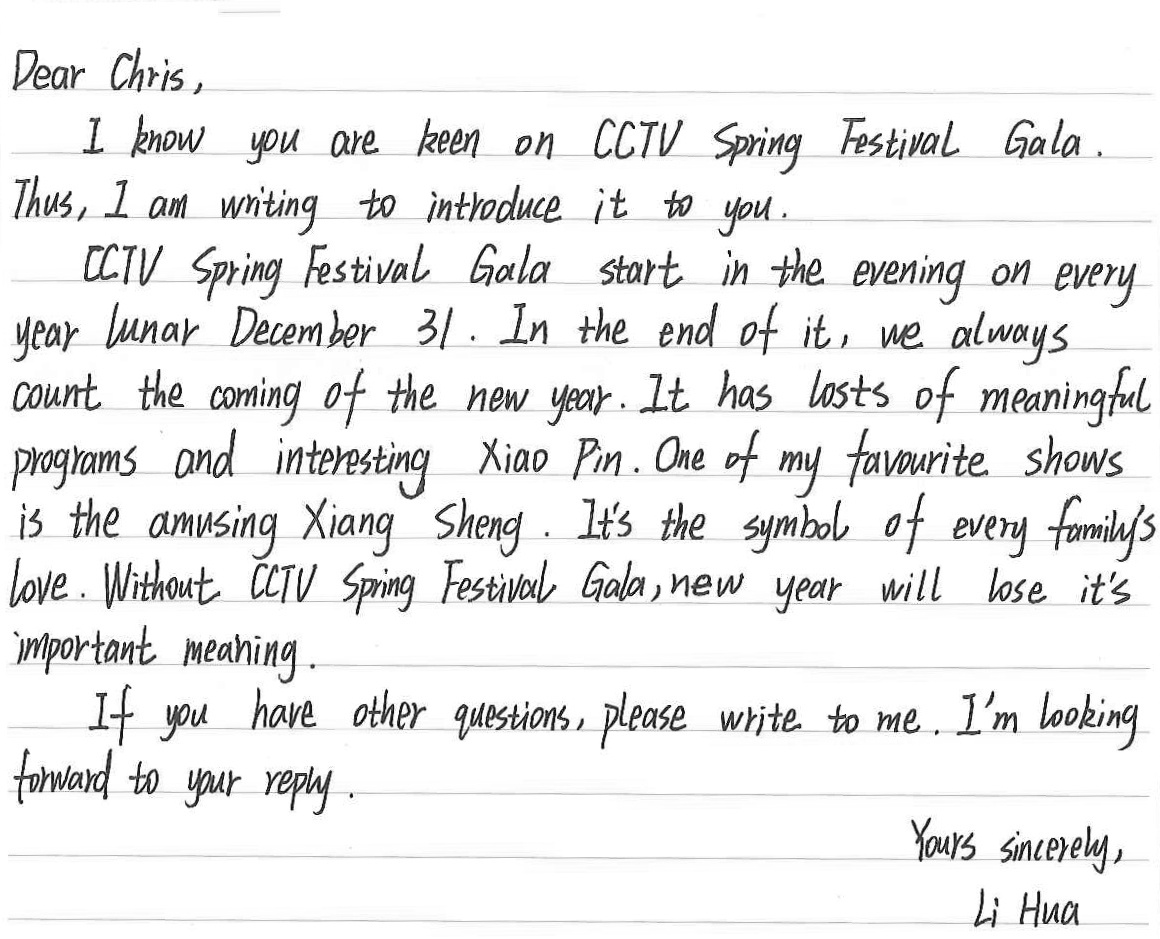 Dear Chris,
I know you are keen on CCTV Spring Festival Gala.
Thus, I am writing to introduce it to you.
CCTV Spring Festival Gala start in the evening on every
year lunar December 31. In the end of it, we always
count the coming of the new year. It has losts of meaningful
programs and interesting Xiao Pin. One of my favourite shows
is the amusing Xiang Sheng. It's the symbol of every family's
love. Without CCTV Spring Festival Gala, new year will lose it's
important meaning.
If you have other questions, please write to me. I'm looking
forward to your reply.
Yours sincerely,
Li Hua